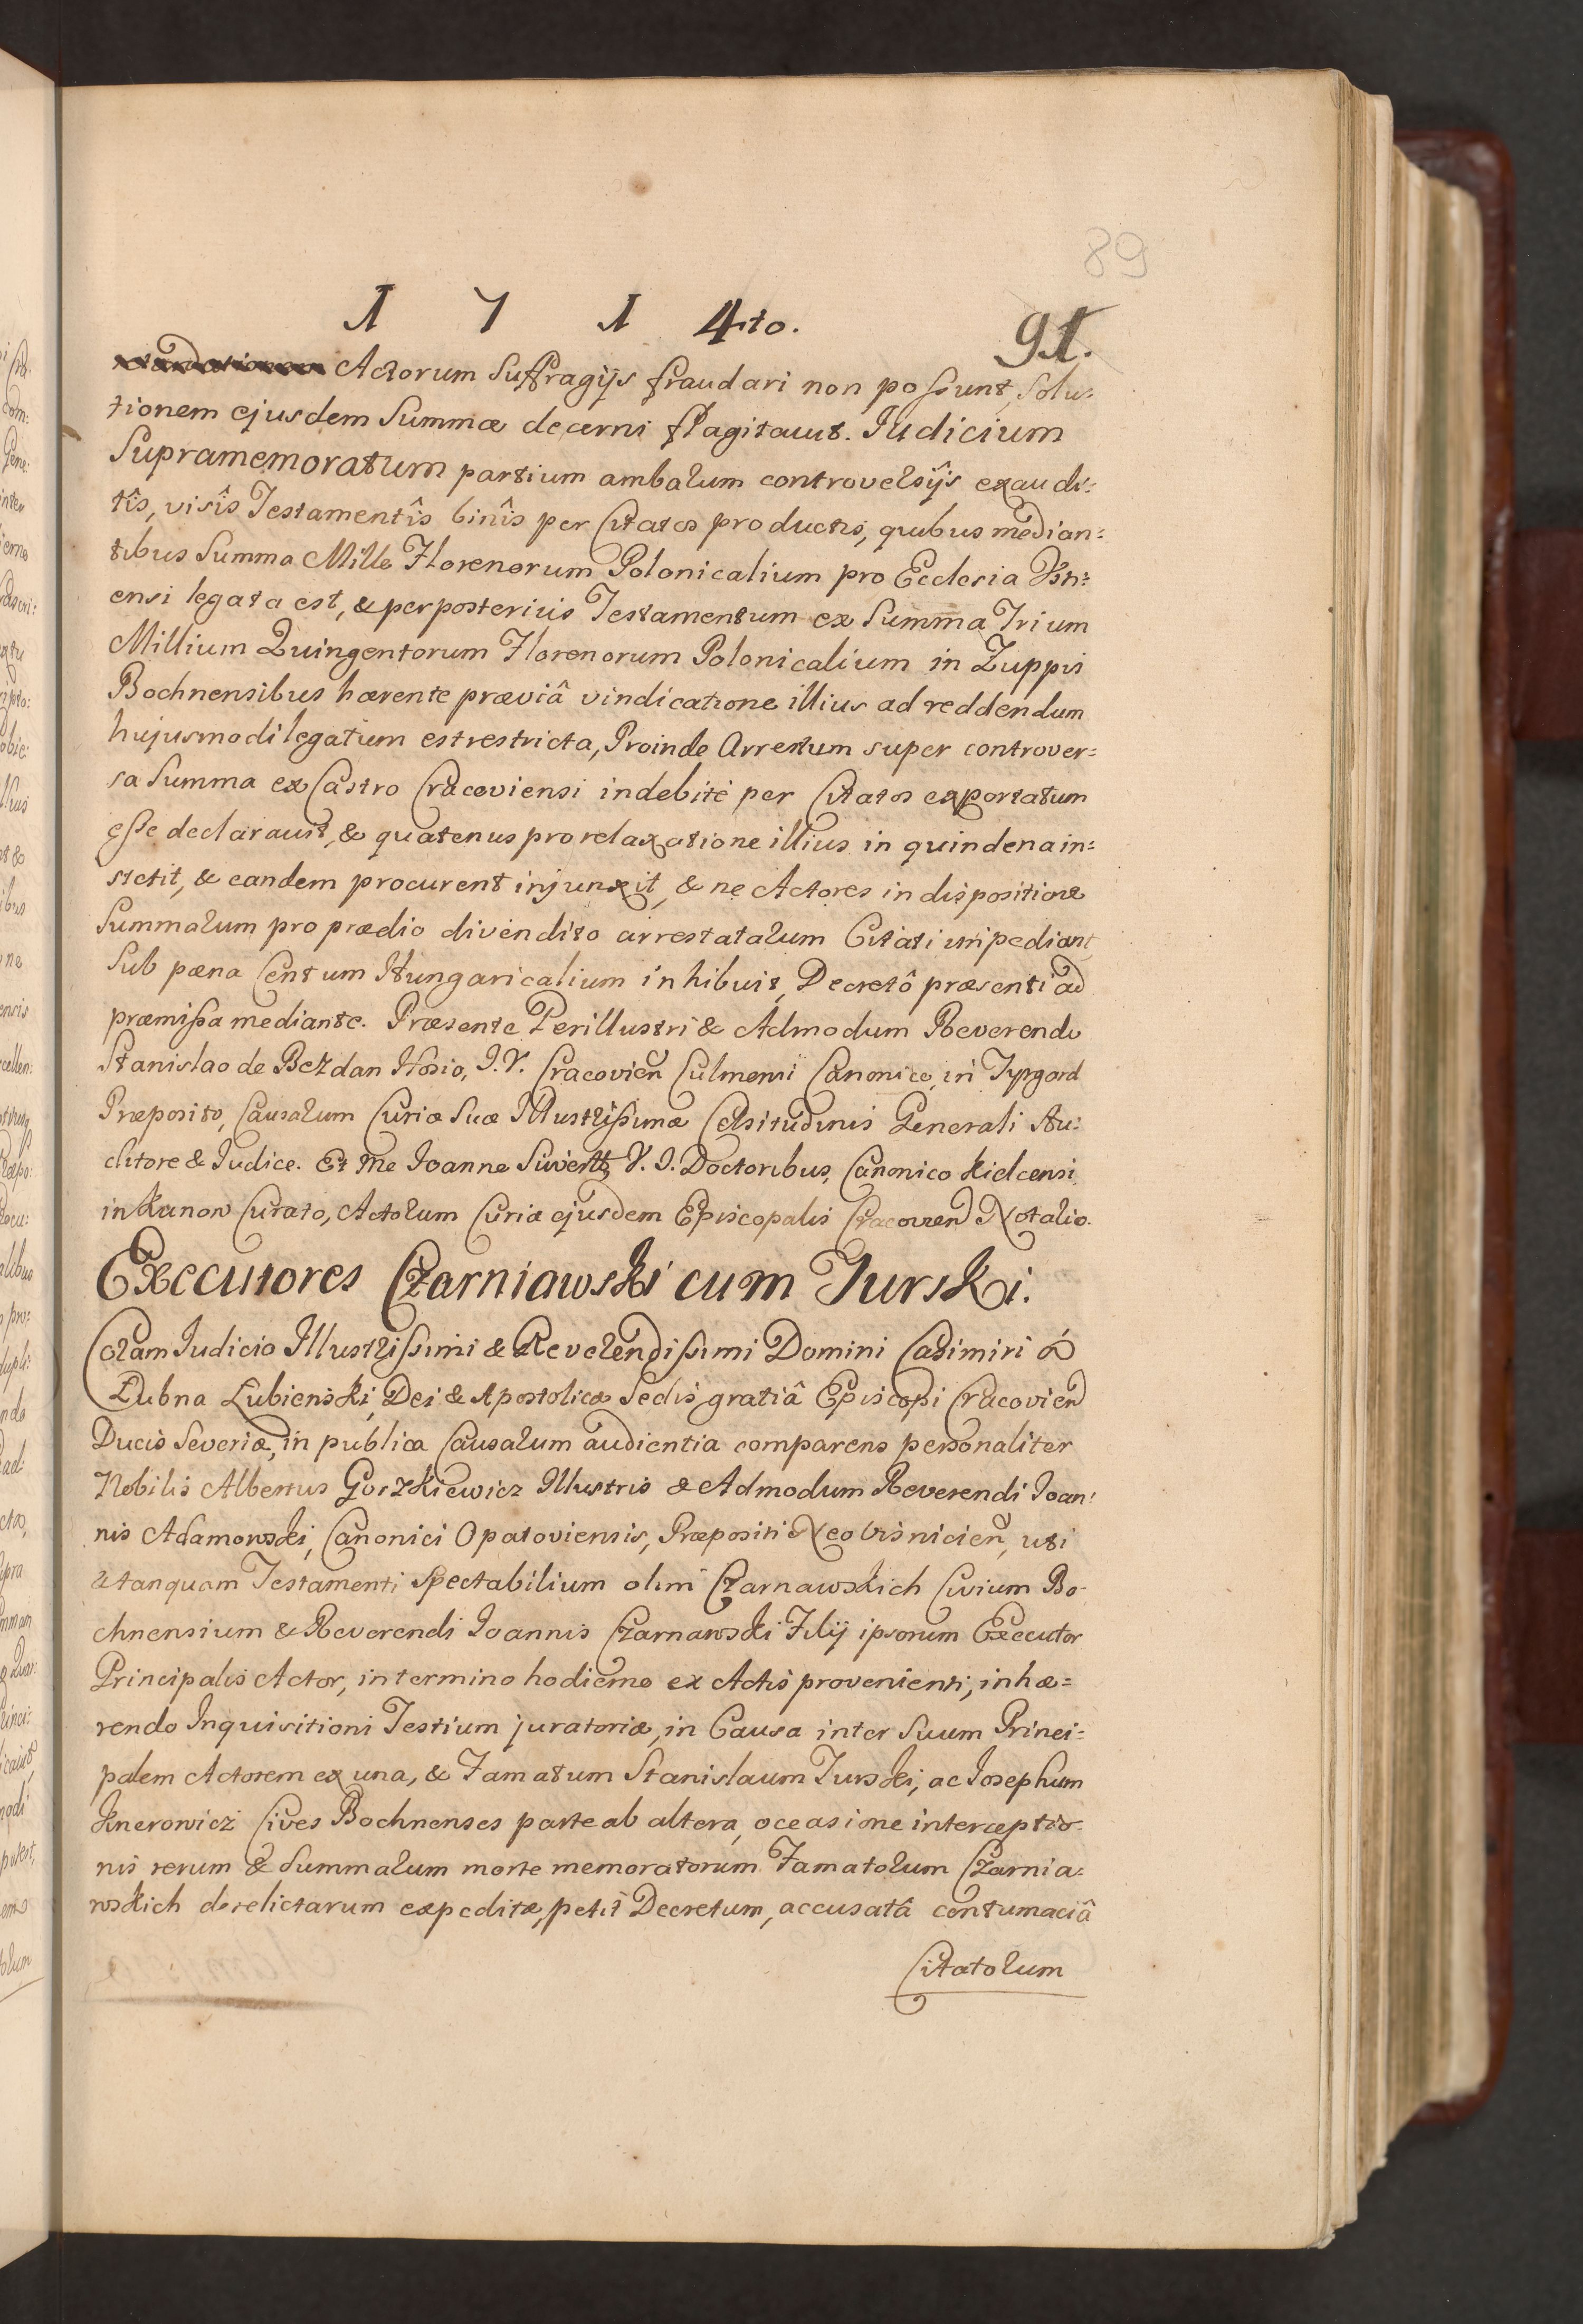 89
1 7 1 4to. 91.
Actorum Suffragijs fraudari non possunt, solu:
tionem ejusdem Summæ decerni flagitavit. Iudicium
Supramemoratum partium ambarum controversijs exaudi:
tîs, visîs Testamentîs binîs per Citatos productis, quibus median:
tibus Summa Mille Florenorum Polonicalium pro Ecclesia Visn:
ensi legata est, & per posterius Testamentum ex Summa Trium
Millium Quingentorum Florenorum Polonicalium in Zuppis
Bochnensibus hærente præviâ vindicatione illius ad reddendum
hujusmodi legatum est restricta, Proinde Arrestum super controver:
sa Summa ex Castro Cracoviensi indebitè per Citatos exportatum
esse declaravit, & quatenus pro relaxatione illius in quindena in:
stetit, & eandem procurent injunxit, & ne Actores in dispositione
Summarum pro prædio divendito arrestatarum Citati impediant
sub pæna Centum Hungaricalium inhibuit, Decretô præsenti ad
præmissa mediante. Præsente Perillustri & Admodum Reverendo
Stanislao de Bezdan Hosio, I.V. Cracovien Culmensi Canonico, in Typgard
Præposito, Causarum Curiæ Suæ Illustrissimæ Celsitudinis Generali Au:
ditore & Iudice. Et me Ioanne Siwertz V. I. Doctoribus, Canonico Kielcensi,
in Kanow Curato, Actorum Curiæ ejusdem Episcopalis Cracovien Notario.
Executores Czarniawski cum Turski.
Coram Iudicio Illustrissimi & Reverendissimi Domini Casimiri à
Łubna Łubienski, Dei & Apostolicæ Sedis gratiâ Episcopi Cracovien
Ducis Severiæ, in publica Causarum audientia comparens personaliter
Nobilis Albertus Gorzkiewicz Illustris & Admodum Reverendi Ioan:
nis Adamowski, Canonici Opatoviensis, Præpositi Neovisnicien, uti
& tanquam Testamenti Spectabilium olim Czarnawskich Civium Bo-
chnensium & Reverendi Ioannis Czarnawski Filij ipsorum Executor
Principalis Actor, in termino hodierno ex Actis provenienti, inhæ=
rendo Inquisitioni Testium juratoriæ, in Causa inter Suum Princi=
palem Actorem ex una, & Famatum Stanislaum Turski, ac Iosephum
Knerowicz Cives Bochnenses parte ab altera, occasione interceptio-
nis rerum & Summarum morte memoratorum Famatorum Czarnia:
wskich derelictarum expeditæ, petit Decretum, accusatâ contumaciâ
Citatorum